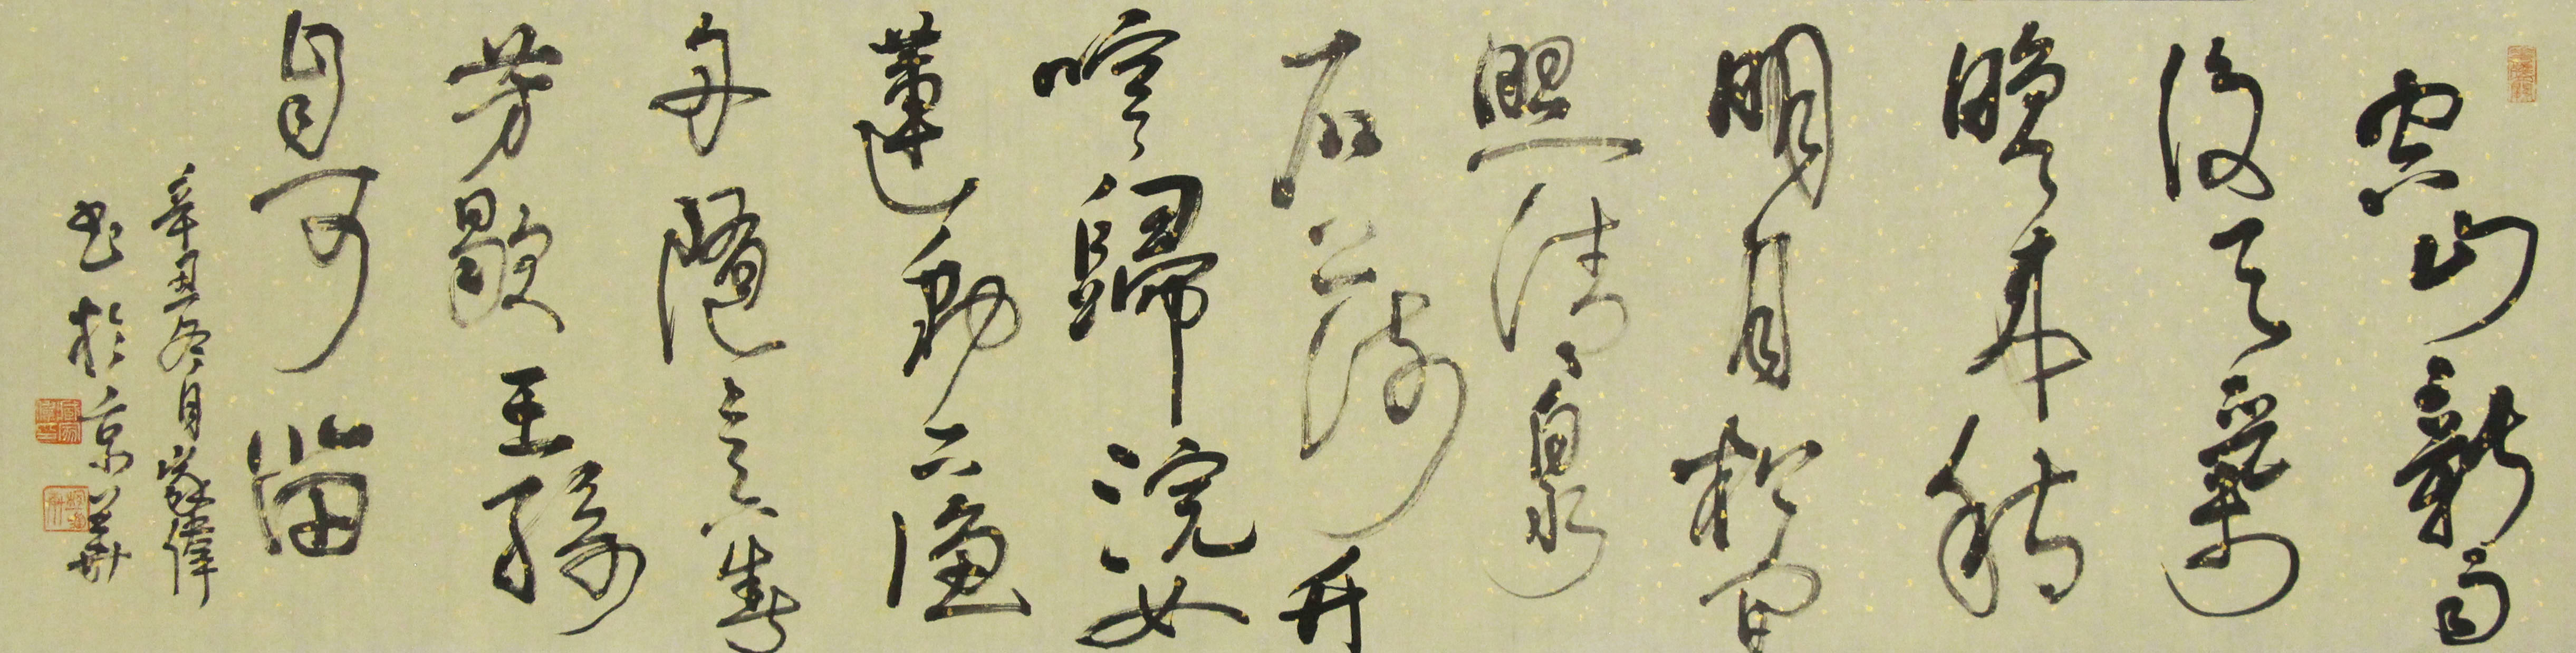 空山新雨
後天氣
晚來秋
明月松間
照清泉
石上流竹
喧歸浣女
蓮動下漁
舟隨意春
芳歇王孫
自可留
辛丑冬月家偉
書於京華